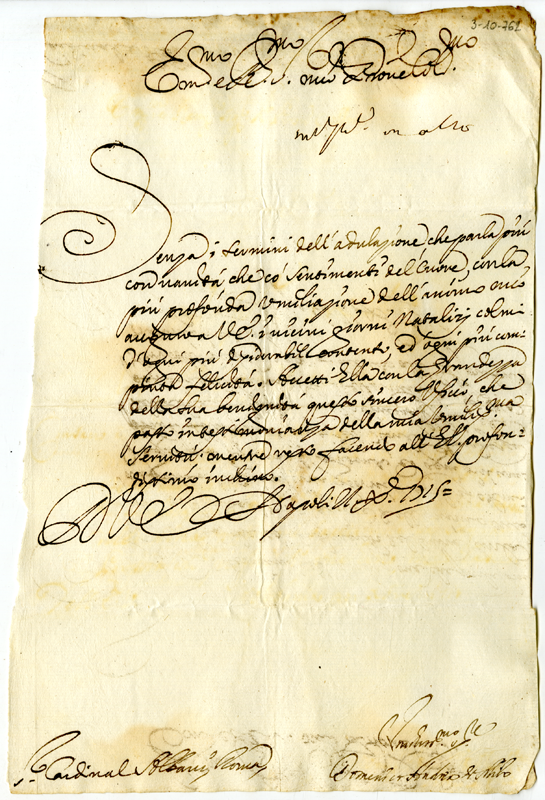 3-10-761
Em.mo e R.mo Sig.r mio P.ron Col.mo
Senza i termini dell'adulazione che parla più
con vanità che co' sentimenti del Cuore, con la
più profonda umiliazione dell'animo mio
auguro a V.E. i vicini giorni Natalizj colmi
d'ogni più desiderabil Contento, ed ogni più com-
pita felicità. Accetti Ella con la grandezza
della sua benignità questo sincero Officio, che
passo in testimonianza della mia umiliss.ma
Servitù: mentre resto facendo all'E.V. profon-
dissimo inchino.
D.V.E. Napoli
S.r Cardinal Albani Roma
Domenico Andrea de Milo